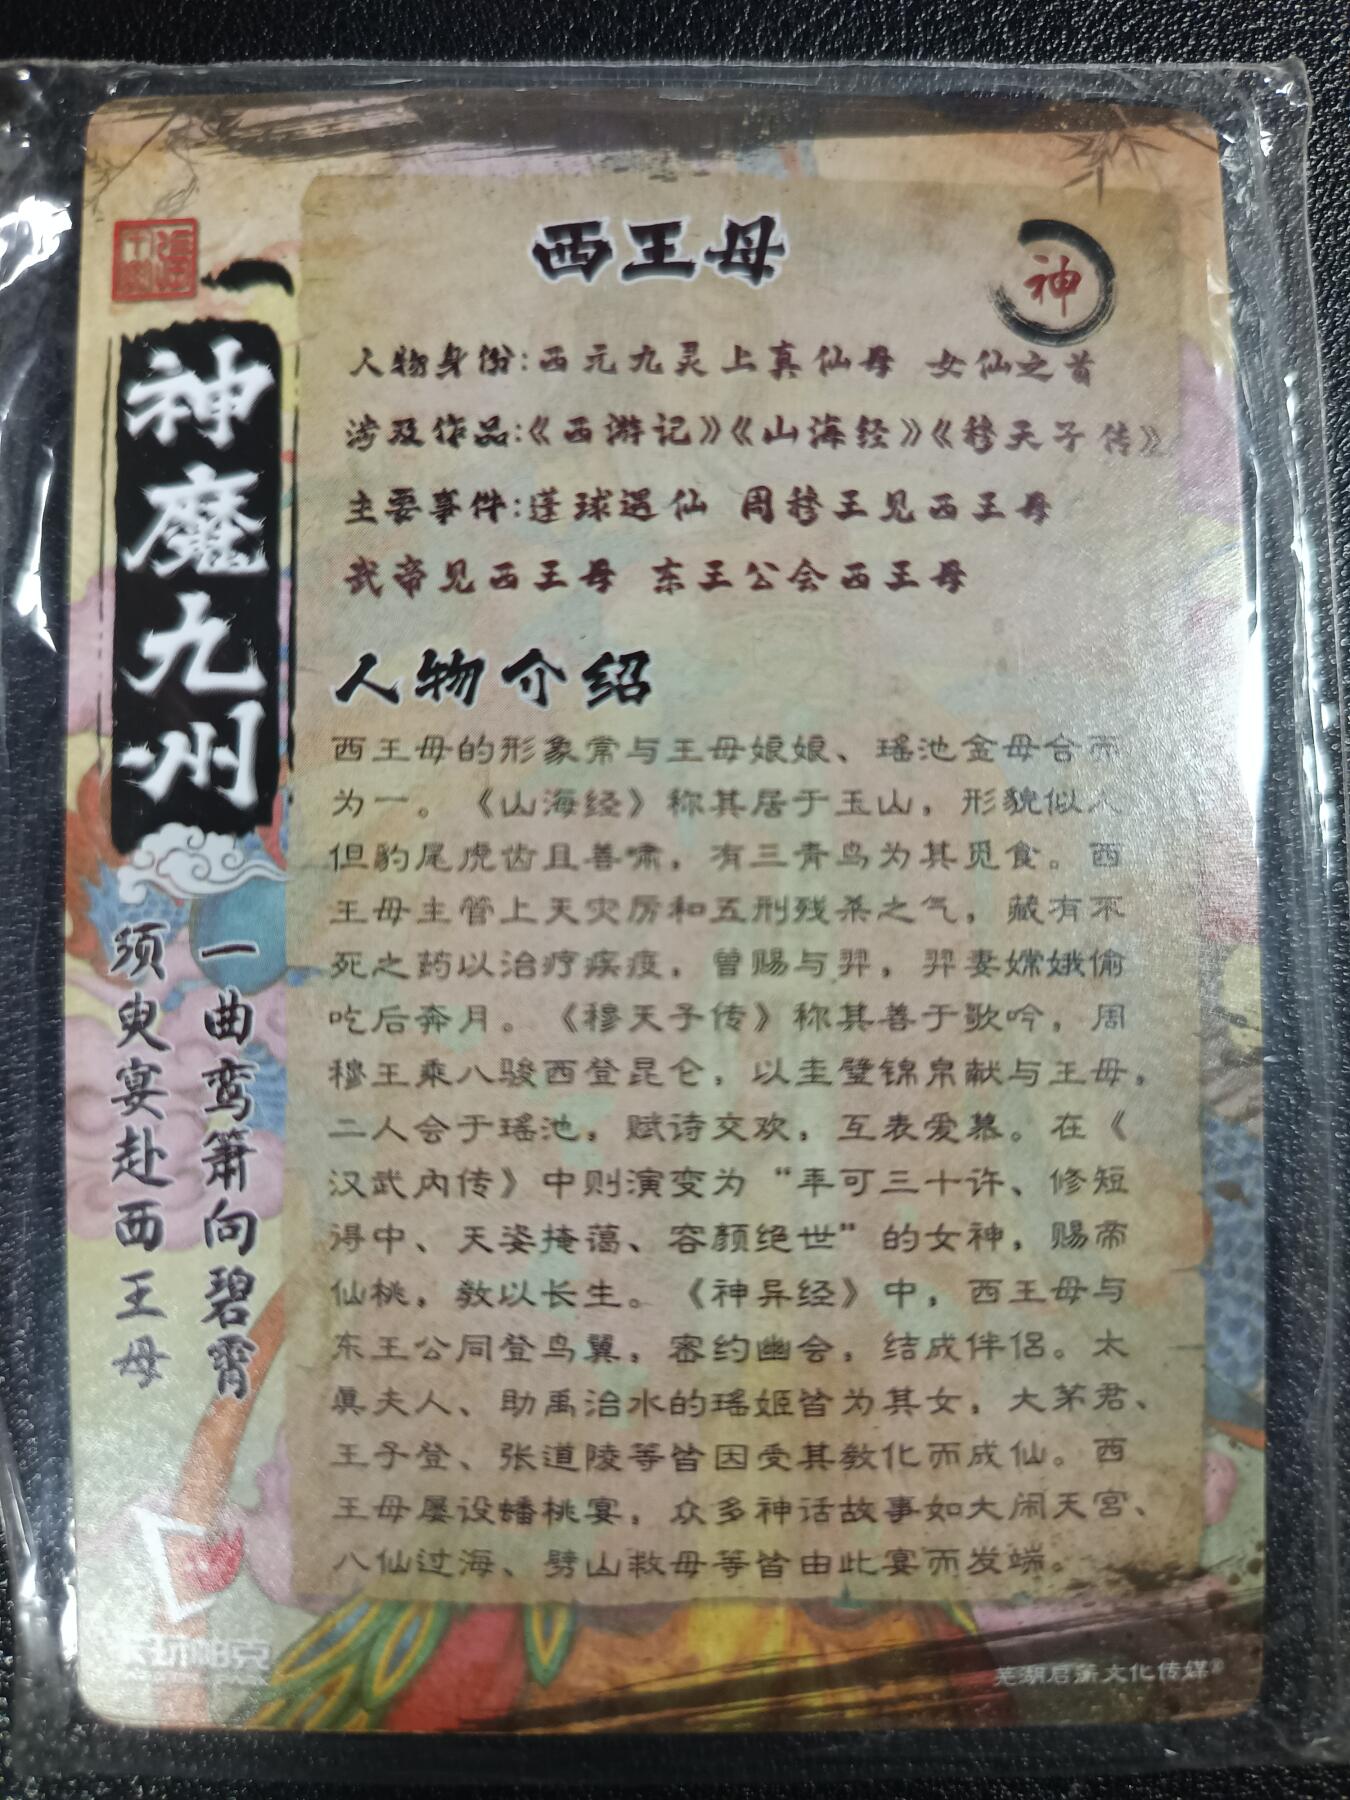 西王母
神
人物身份:西元九灵上真仙母 女仙之首
涉及作品:《西游记》《山海经》《穆天子传》
主要事件:蓬球遇仙 周穆王见西王母
武帝见西王母 东王公会西王母
人物介绍
西王母的形象常与王母娘娘、瑶池金母合而
为一。《山海经》称其居于玉山，形貌似人
但豹尾虎齿且善啸，有三青鸟为其觅食。西
王母主管上天灾厉和五刑残杀之气，藏有不
死之药以治疗疾疫，曾赐与羿，羿妻嫦娥偷
吃后奔月。《穆天子传》称其善于歌吟，周
穆王乘八骏西登昆仑，以圭璧锦帛献与王母，
二人会于瑶池，赋诗交欢，互表爱慕。在《
汉武内传》中则演变为“年可三十许、修短
得中、天姿掩蔼、容颜绝世”的女神，赐帝
仙桃，教以长生。《神异经》中，西王母与
东王公同登鸟翼，密约幽会，结成伴侣。太
真夫人、助禹治水的瑶姬皆为其女，大茅君、
王子登、张道陵等皆因受其教化而成仙。西
王母屡设蟠桃宴，众多神话故事如大闹天宫、
八仙过海、劈山救母等皆由此宴而发端。
神魔九州
一曲鸾箫向碧霄
须臾宴赴西王母
芜湖启新文化传媒